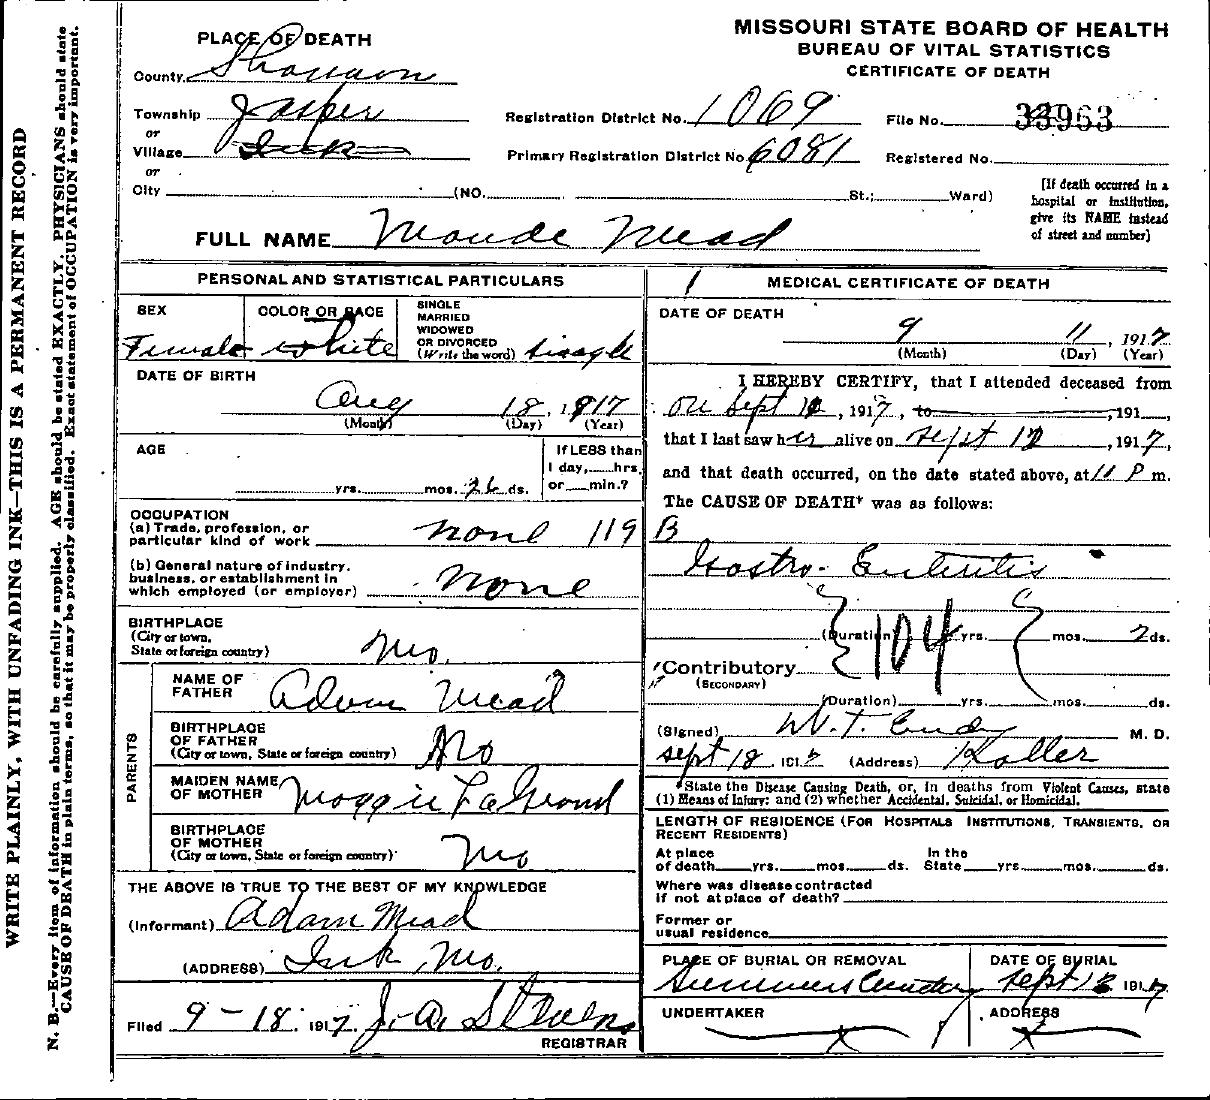 MISSOURI STATE BOARD OF HEALTH
BUREAU OF VITAL STATISTICS
CERTIFICATE OF DEATH
PLACE OF DEATH
County Shannon
Township Jasper
or
Village Ink
or
City (NO. St.; Ward)
Registration District No. 1069
File No. 33963
Primary Registration District No. 6081
Registered No.
[If death occurred in a
hospital or institution,
give its NAME instead
of street and number]
FULL NAME Maude Mead
PERSONAL AND STATISTICAL PARTICULARS
SEX
Female
COLOR OR RACE
White
SINGLE
MARRIED
WIDOWED
OR DIVORCED
(Write the word) Single
DATE OF BIRTH
Aug 18, 1917
(Month) (Day) (Year)
AGE
yrs. mos. 26 ds.
If LESS than
1 day, hrs.
or min.?
OCCUPATION
(a) Trade, profession, or
particular kind of work none 119
(b) General nature of industry,
business, or establishment in
which employed (or employer) none
BIRTHPLACE
(City or town,
State or foreign country) Mo.
PARENTS
NAME OF
FATHER Adam Mead
BIRTHPLACE
OF FATHER
(City or town, State or foreign country) Mo
MAIDEN NAME
OF MOTHER Maggie
BIRTHPLACE
OF MOTHER
(City or town, State or foreign country) Mo
THE ABOVE IS TRUE TO THE BEST OF MY KNOWLEDGE
(Informant) Adam Mead
(ADDRESS) Ink, Mo.
Filed 9-18. 1917. J. A. Stevens
REGISTRAR
1 MEDICAL CERTIFICATE OF DEATH
DATE OF DEATH
9 11, 1917
(Month) (Day) (Year)
I HEREBY CERTIFY, that I attended deceased from
on Sept , 1917, to ,191 ,
that I last saw her alive on Sept , 1917,
and that death occurred, on the date stated above, at 11 P m.
The CAUSE OF DEATH* was as follows:
B
Gastro-Enteritis
(Duration) 104 yrs. mos. 2 ds.
Contributory
(SECONDARY)
(Duration) yrs. mos. ds.
(Signed) W. T. Eudy M. D.
Sept 18, 1917 (Address)
*State the Disease Causing Death, or, in deaths from Violent Causes, state
(1) Means of Injury; and (2) whether Accidental, Suicidal, or Homicidal.
LENGTH OF RESIDENCE (FOR HOSPITALS INSTITUTIONS, TRANSIENTS, OR
RECENT RESIDENTS)
At place
of death yrs. mos. ds.
In the
State yrs. mos. ds.
Where was disease contracted
if not at place of death?
Former or
usual residence
PLACE OF BURIAL OR REMOVAL
Summers Cemetery
DATE OF BURIAL
Sept 1917
UNDERTAKER
ADDRESS
WRITE PLAINLY, WITH UNFADING INK—THIS IS A PERMANENT RECORD
N. B.—Every item of information should be carefully supplied. AGE should be stated EXACTLY. PHYSICIANS should state
CAUSE OF DEATH in plain terms, so that it may be properly classified. Exact statement of OCCUPATION is very important.